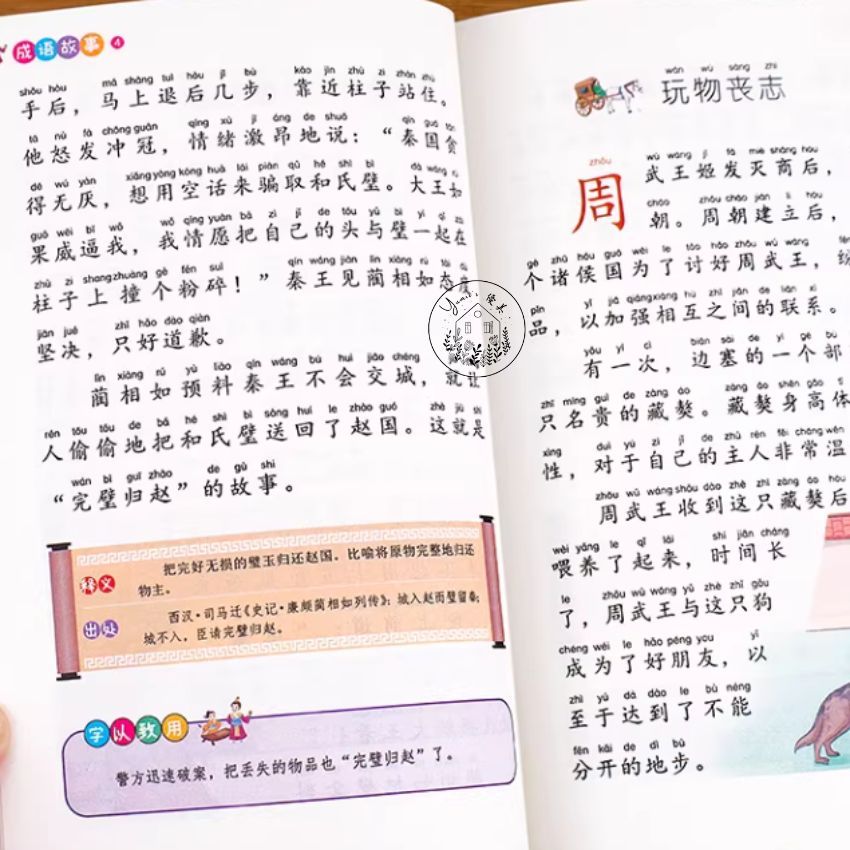 成语故事 4
shǒu hòu mǎ shàng tuì hòu jǐ bù kào jìn zhù zi zhàn zhù
手后，马上退后几步，靠近柱子站住。
tā nù fà chōng guān qíng xù jī áng de shuō qín guó tān
他怒发冲冠，情绪激昂地说：“秦国贪
dé wú yàn xiǎng yòng kōng huà lái piàn qǔ hé shì bì dà wáng rú
得无厌，想用空话来骗取和氏璧。大王如
guǒ wēi bī wǒ wǒ qíng yuàn bǎ zì jǐ de tóu yǔ bì yì qǐ zài
果威逼我，我情愿把自己的头与璧一起在
zhù zi shang zhuàng gè fěn suì qín wáng jiàn lìn xiàng rú tài dù
柱子上撞个粉碎！”秦王见蔺相如态度
jiān jué zhǐ hǎo dào qiàn
坚决，只好道歉。
lìn xiàng rú yù liào qín wáng bú huì jiāo chéng
蔺相如预料秦王不会交城，就让
rén tōu tōu de bǎ hé shì bì sòng huí le zhào guó zhè jiù shì
人偷偷地把和氏璧送回了赵国。这就是
wán bì guī zhào de gù shi
“完璧归赵”的故事。
释义
把完好无损的璧玉归还赵国。比喻将原物完整地归还
物主。
出处
西汉·司马迁《史记·廉颇蔺相如列传》：城入赵而璧留秦；
城不入，臣请完璧归赵。
学以致用
警方迅速破案，把丢失的物品也“完璧归赵”了。
wán wù sàng zhì
玩物丧志
zhōu
周
wǔ wáng jī fā miè shāng hòu
武王姬发灭商后，
cháo zhōu cháo jiàn lì hòu
朝。周朝建立后，
gè zhū hóu guó wèi le tǎo hǎo zhōu wǔ wáng
个诸侯国为了讨好周武王，纷
pǐn yǐ jiā qiáng xiāng hù zhī jiān de lián xì
品，以加强相互之间的联系。
yǒu yí cì biān sài de yí gè bù
有一次，边塞的一个部
zhī míng guì de zàng áo zàng áo shēn gāo tǐ
只名贵的藏獒。藏獒身高体
xìng duì yú zì jǐ de zhǔ rén fēi cháng wēn
性，对于自己的主人非常温
zhōu wǔ wáng shōu dào zhè zhī zàng áo hòu
周武王收到这只藏獒后
wèi yǎng le qǐ lái shí jiān cháng
喂养了起来，时间长
le zhōu wǔ wáng yǔ zhè zhī gǒu
了，周武王与这只狗
chéng wéi le hǎo péng you yǐ
成为了好朋友，以
zhì yú dá dào le bù néng
至于达到了不能
fēn kāi de dì bù
分开的地步。